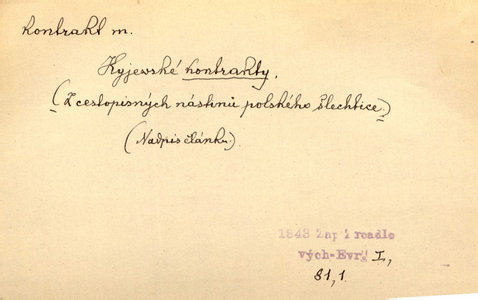 kontrakt m.
Kyjewské kontrakty.
(Z cestopisných nástinů polského šlechtice.)
(Nadpis článku.)
1843 Zap Zrcadlo
vých-Evr. I,
81,1.